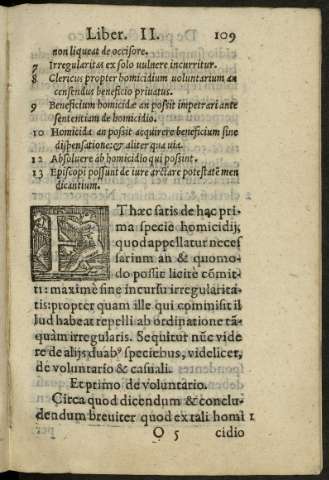 Liber. II. 109
non liqueat de occisore.
7 Irregularitas ex solo uulnere incurritur.
8 Clericus propter homicidium uoluntarium an
censendus beneficio priuatus.
9 Beneficium homicidæ an possit impetrari ante
sententiam de homicidio.
10 Homicida an possit acquirere beneficium sine
dispensatione: & aliter qua uia.
12 Absoluere ab homicidio qui possint.
13 Episcopi possunt de iure arctare potestatē men
dicantium.
ET hæc satis de hac pri
ma specie homicidij,
quod appellatur neces
sarium an & quomo-
do possit licitè cōmit-
ti: maximè sine incursu irregularita-
tis: propter quam ille qui commisit il
lud habeat repelli ab ordinatione tā-
quàm irregularis. Sequitur nūc vide
re de alijs duabꝰ speciebus, videlicet,
de voluntario & casuali.
Et primo de voluntario.
Circa quod dicendum & conclu-
dendum breuiter quod ex tali homi 1
O 5 cidio